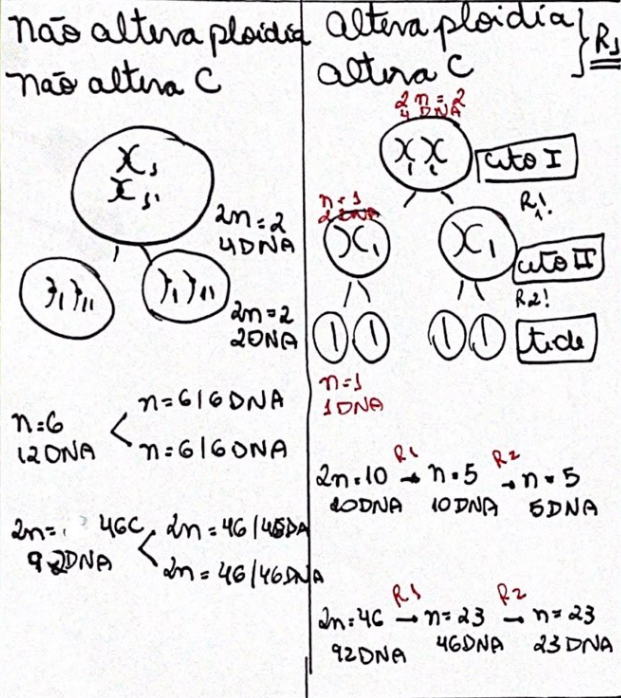 não altera ploidia
não altera C
2n=2
4DNA
2n=2
2DNA
n=6
12DNA
n=6/6DNA
n=6/6DNA
2n=
46C
92DNA
2n=46/46DNA
2n=46/46DNA
altera ploidia
altera C
R1
2n=2
4DNA
cito I
R1!
n=1
2DNA
cito II
R2!
tide
n=1
1DNA
R1 R2
2n=10 → n=5 → n=5
20DNA 10DNA 5DNA
R1 R2
2n=46 → n=23 → n=23
92DNA 46DNA 23DNA